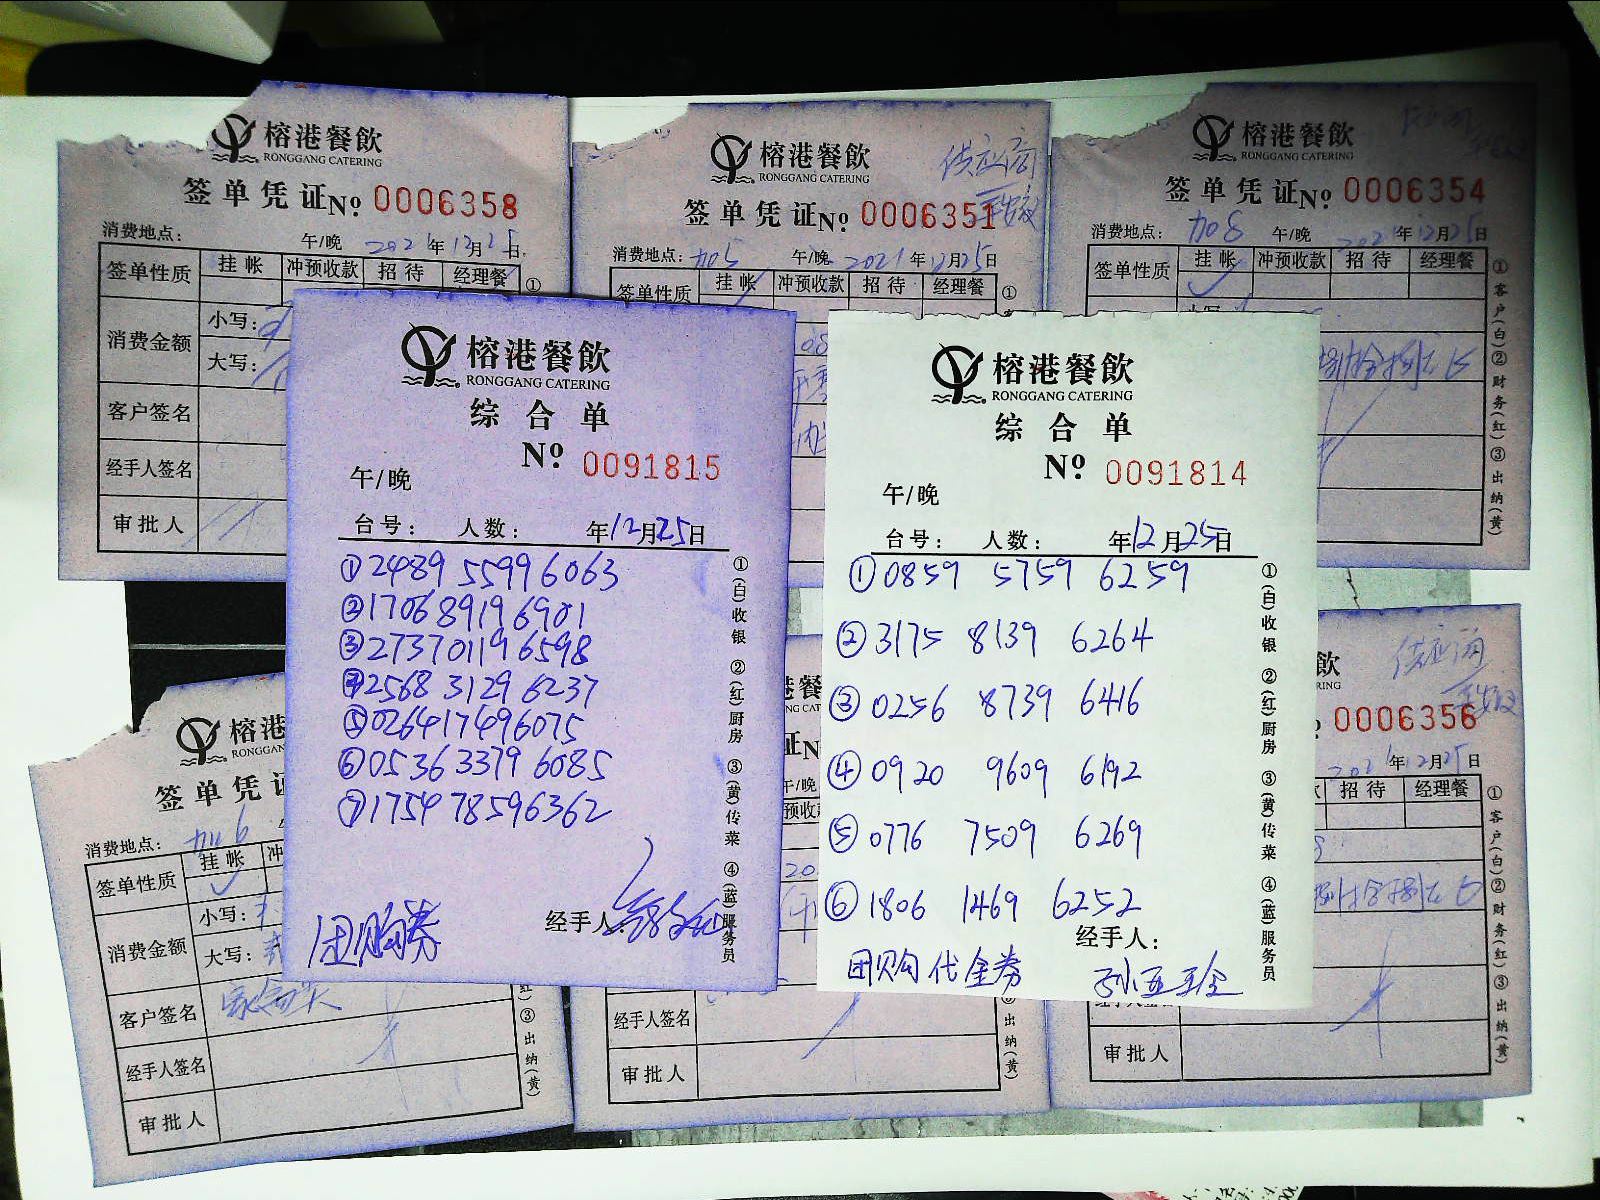 榕港餐飲
RONGGANG CATERING
签单凭证 No. 0006358
消费地点: 午/晚 2021年12月25日
签单性质 挂帐 冲预收款 招待 经理餐
消费金额 小写:
大写:
客户签名
经手人签名
审批人
①
榕港餐飲
RONGGANG CATERING
供应商
签单凭证 No. 0006351
消费地点: 加5 午/晚 2021年12月25日
签单性质 挂帐 冲预收款 招待 经理餐
①
榕港餐飲
RONGGANG CATERING
签单凭证 No. 0006354
消费地点: 加8 午/晚 2021年12月25日
签单性质 挂帐 冲预收款 招待 经理餐
①客户(白)②财务(红)③出纳(黄)
榕港餐飲
RONGGANG CATERING
综合单
No. 0091815
午/晚
台号: 人数: 年12月25日
①2489 5599 6063
②1706 8919 6901
③2737 0119 6598
④2568 3129 6237
⑤0264 1749 6075
⑥0536 3379 6085
⑦1754 7859 6362
团购券
经手人:
①(白)收银 ②(红)厨房 ③(黄)传菜 ④(蓝)服务员
榕港餐飲
RONGGANG CATERING
综合单
No. 0091814
午/晚
台号: 人数: 年12月25日
①0859 5759 6259
②3175 8139 6264
③0256 8739 6416
④0920 9609 6192
⑤0776 7509 6269
⑥1806 1469 6252
经手人:
团购代金券 孙亚玲
①(白)收银 ②(红)厨房 ③(黄)传菜 ④(蓝)服务员
榕港
RONGGAN
签单凭证
消费地点: 加6
签单性质 挂帐 冲
消费金额 小写:
大写:
客户签名
经手人签名
审批人
③出纳(黄)
经手人签名
审批人
出纳(黄)
飲
RING
供应商
0006356
2021年12月25日
招待 经理餐
审批人
①客户(白)②财务(红)③出纳(黄)